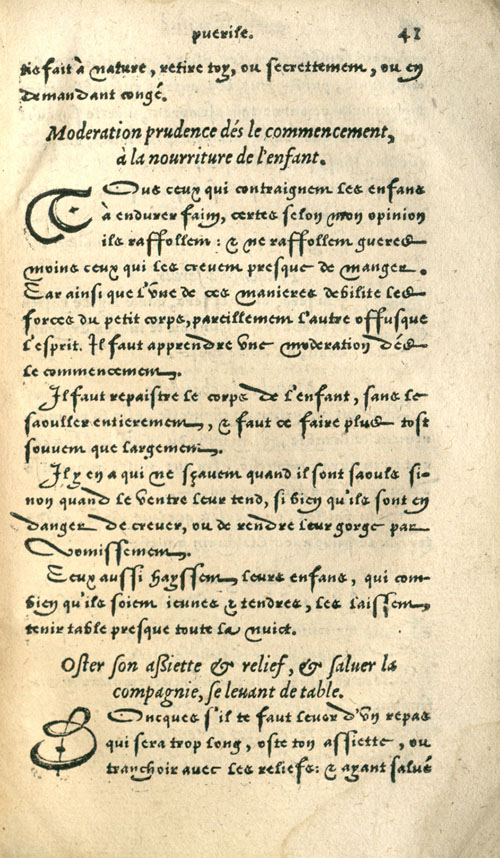 puerile. 41
tis fait à nature, retire toy, ou secrettement, ou en
demandant congé.
Moderation prudence dés le commencement,
à la nourriture de l'enfant.
Tous ceux qui contraignent les enfans
à endurer faim, certes selon mon opinion
ilz raffollent : & ne raffollent gueres
moins ceux qui les creuent presque de manger.
Car ainsi que l'vne de ces manieres debilite les
forces du petit corps, pareillement l'autre offusque
l'esprit. Il faut apprendre vne moderation dés
le commencement.
Il faut repaistre le corps de l'enfant, sans le
saouller entierement, & faut ce faire plus tost
souuent que largement.
Il y en a qui ne sçauent quand il sont saouls si-
non quand le ventre leur tend, si bien qu'ils sont en
danger de creuer, ou de rendre leur gorge par
vomissement.
Ceux aussi hayssent leurs enfans, qui com-
bien qu'ils soient ieunes & tendres, les laissent
tenir table presque toute la nuict.
Oster son aßiette & relief, & saluer la
compagnie, se leuant de table.
Doncques s'il te faut leuer d'vn repas
qui sera trop long, oste ton assiette, ou
tranchoir auec les reliefs : & ayant salué